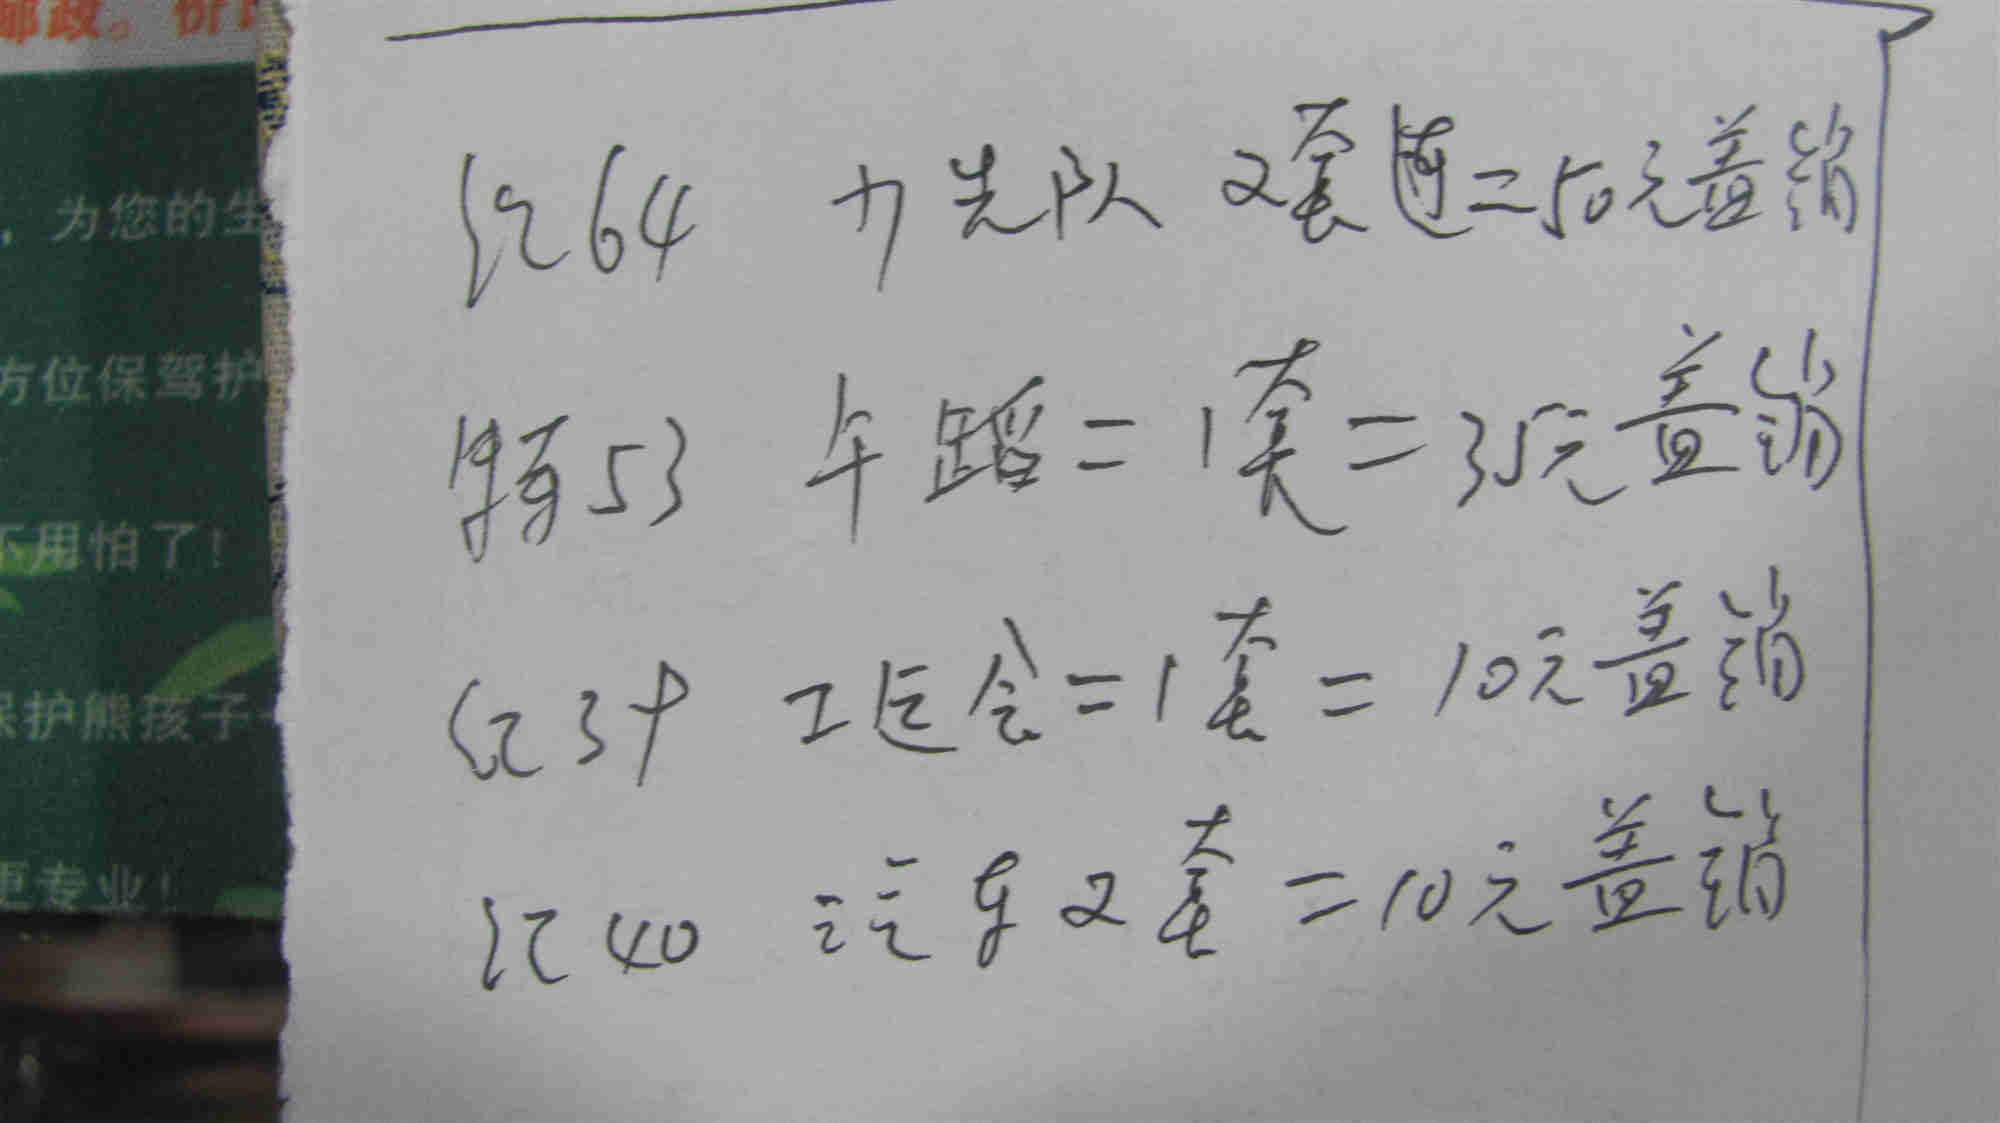 邮政。价
，为您的生
方位保驾护
不用怕了！
保护熊孩子
更专业！
纪64 少先队 2套连=50元盖销
特53 午蹈=1套=35元盖销
纪39 工运会=1套=10元盖销
纪40 汽车2套=10元盖销